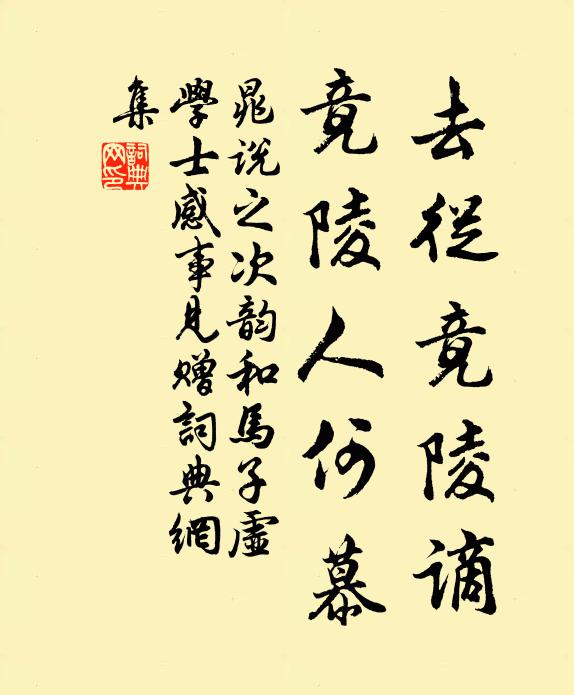 去從竟陵謫
竟陵人何慕
晁說之次韵和馬子虛
學士感事見贈詞典網
集
詞典
网印